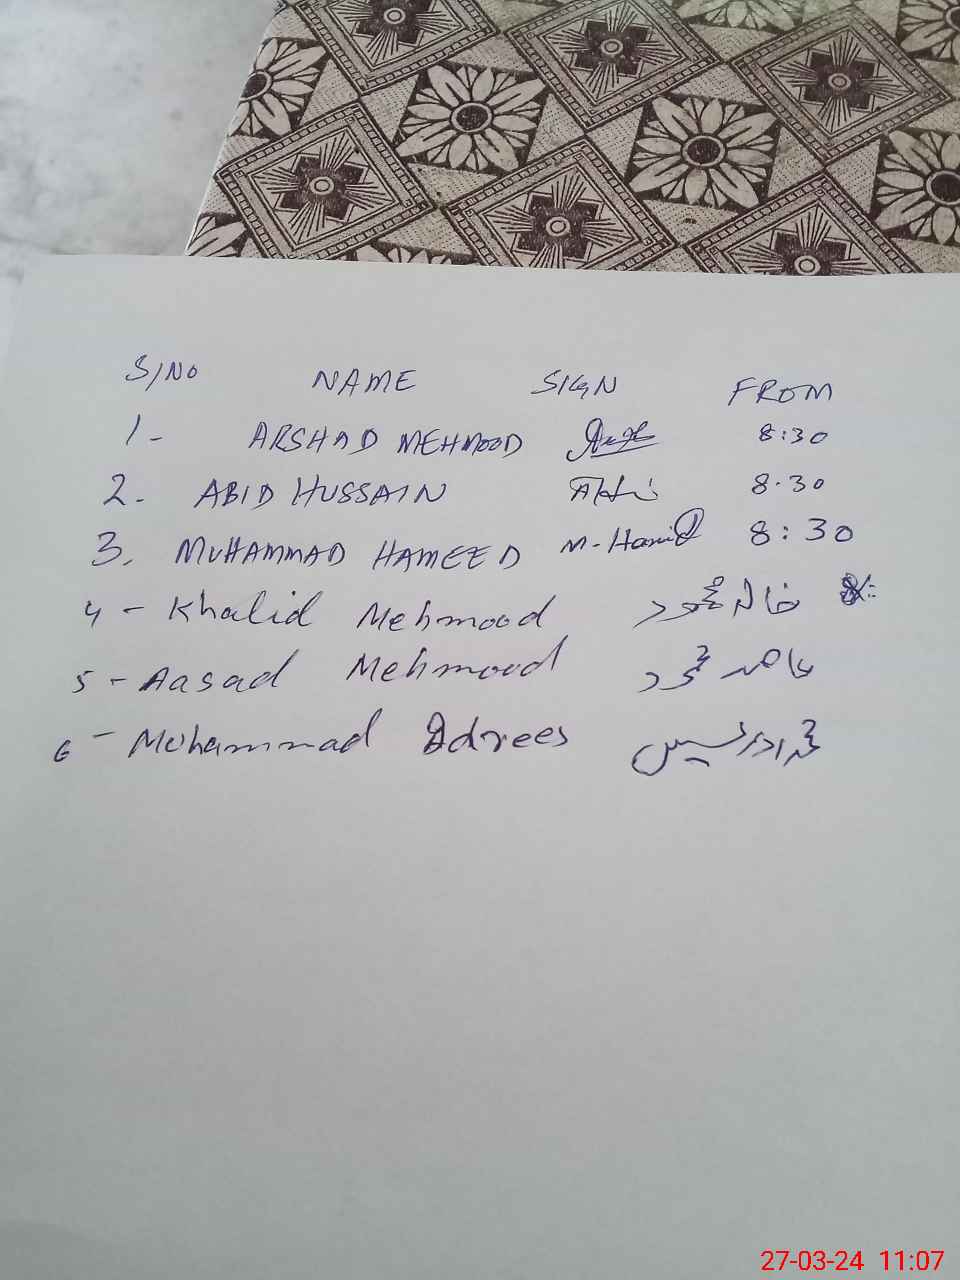 S/NO NAME SIGN FROM
1- ARSHAD MEHMOOD 8:30
2. ABID HUSSAIN 8.30
3. MUHAMMAD HAMEED M-Hamid 8:30
4- Khalid Mehmood خالد محمود
5- Aasad Mehmood محمود
6- Mohammad Idrees محمد ادریس
27-03-24 11:07